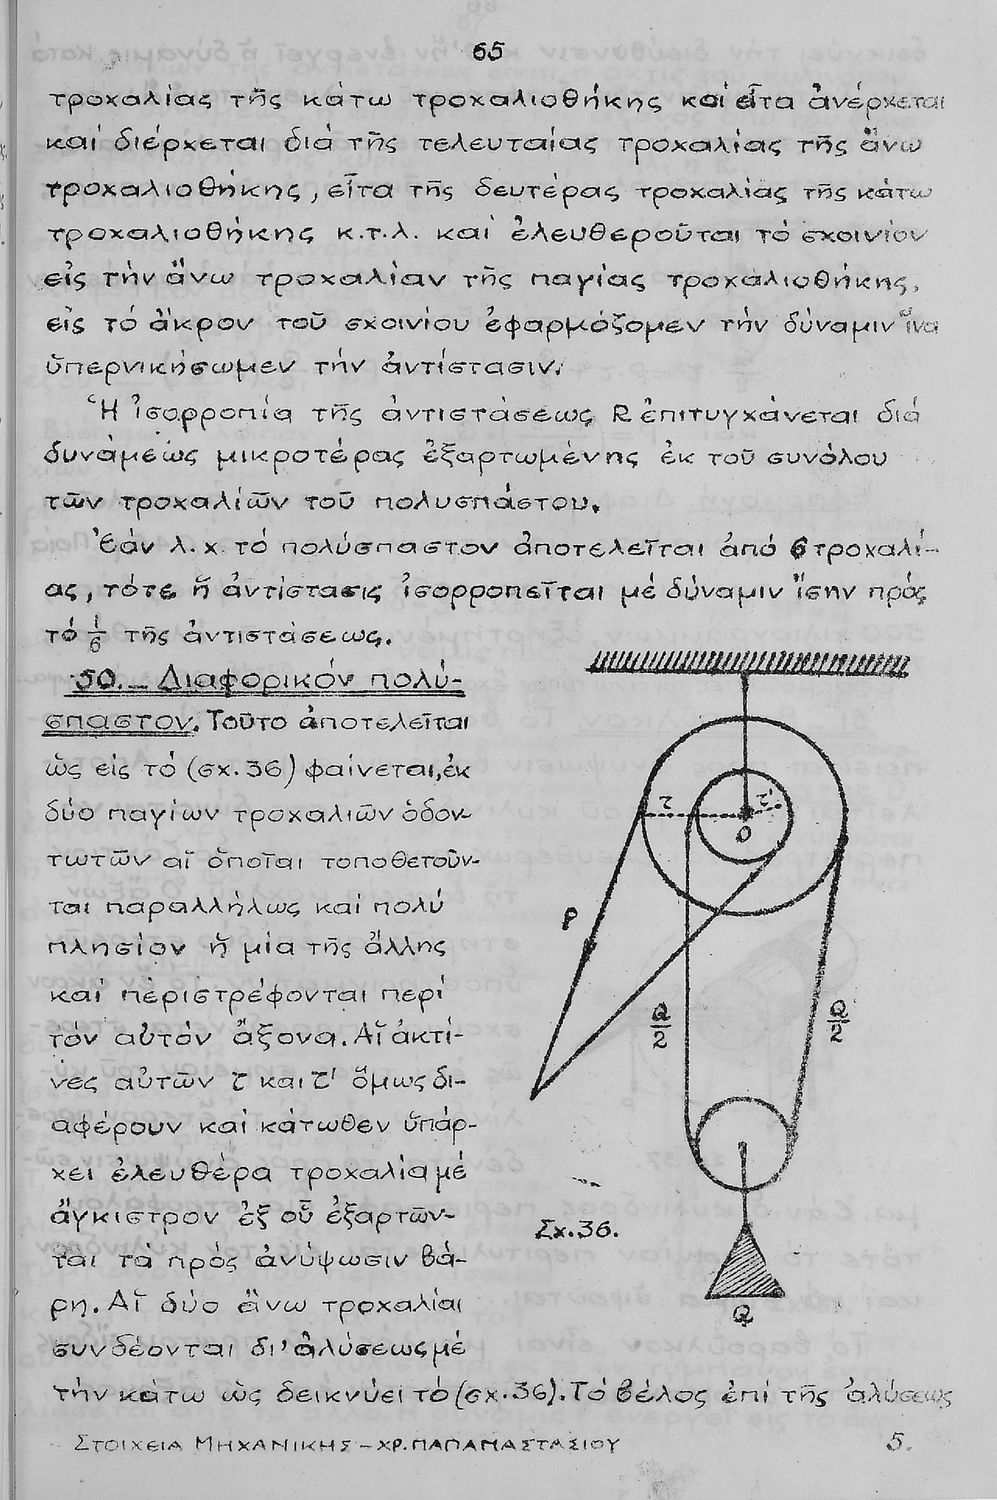 65
τροχαλίας τῆς κάτω τροχαλιοθήκης καί εἶτα ἀνέρχεται
καί διέρχεται διά τῆς τελευταίας τροχαλίας τῆς ἄνω
τροχαλιοθήκης, εἶτα τῆς δευτέρας τροχαλίας τῆς κάτω
τροχαλιοθήκης κ.τ.λ. καί ἐλευθεροῦται τό σχοινίον
εἰς τήν ἄνω τροχαλίαν τῆς παγίας τροχαλιοθήκης,
εἰς τό ἄκρον τοῦ σχοινίου ἐφαρμόζομεν τήν δύναμιν ἵνα
ὕπερνικήσωμεν τήν ἀντίστασιν.
Ἡ ἰσορροπία τῆς ἀντιστάσεως R ἐπιτυγχάνεται διά
δυνάμεως μικροτέρας ἐξαρτωμένης ἐκ τοῦ συνόλου
τῶν τροχαλιῶν τοῦ πολυσπάστου.
Ἐάν λ.χ. τό πολύσπαστον ἀποτελεῖται ἀπό 6 τροχαλί-
ας, τότε ἥ ἀντίστασις ἰσορροπεῖται μέ δύναμιν ἴσην πρός
τό 1/6 τῆς ἀντιστάσεως.
50.- Διαφορικόν πολύ-
σπαστον. Τοῦτο ἀποτελεῖται
ὡς εἰς τό (σχ. 36) φαίνεται, ἐκ
δύο παγίων τροχαλιῶν ὀδον-
τωτῶν αἵ ὁποῖαι τοποθετοῦν-
ται παραλλήλως καί πολύ
πλησίον ἥ μία τῆς ἄλλης
καί περιστρέφονται περί
τόν αὐτόν ἄξονα. Αἵ ἀκτί-
νες αὐτῶν τ και τ' ὅμως δι-
αφέρουν καί κάτωθεν ὕπάρ-
χει ἐλευθέρα τροχαλία μέ
ἄγκιστρον ἐξ οὗ ἐξαρτῶν-
ται τά πρός ἀνύψωσιν βά-
ρη. Αἵ δύο ἄνω τροχαλίαι
συνδέονται δι' ἀλύσεως μέ
τήν κάτω ὡς δεικνύει τό (σχ. 36). Τό βέλος ἐπί τῆς ἁλύσεως
τ τ'
O
P
Q/2 Q/2
Σχ. 36.
Q
ΣΤΟΙΧΕΙΑ ΜΗΧΑΝΙΚΗΣ - ΧΡ. ΠΑΠΑΝΑΣΤΑΣΙΟΥ 5.